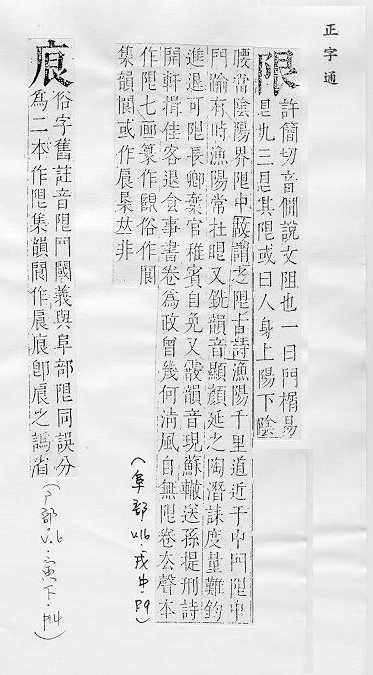 正字通
限
許簡切音僴說文阻也一曰門榍易
艮九三艮其限或曰人身上陽下陰
腰當陰陽界限中故謂之限古詩漁陽千里道近于中門限中
門踰有時漁陽常在眼又銑韻音顯顏延之陶潛誄度量難鈞
進退可限長卿棄官稚賓自免又霰韻音現蘇轍送孫提刑詩
開軒揖佳客退食事書卷為政曾幾何淸風自無限卷去聲本
作限七画篆作俗作
集韻或作非
(阜部 v.16.戌中.P9)
俗字舊註音限門閾義與阜部限同誤分
為二本作限集韻作卽之譌省
(部 v.6.寅下.P4)